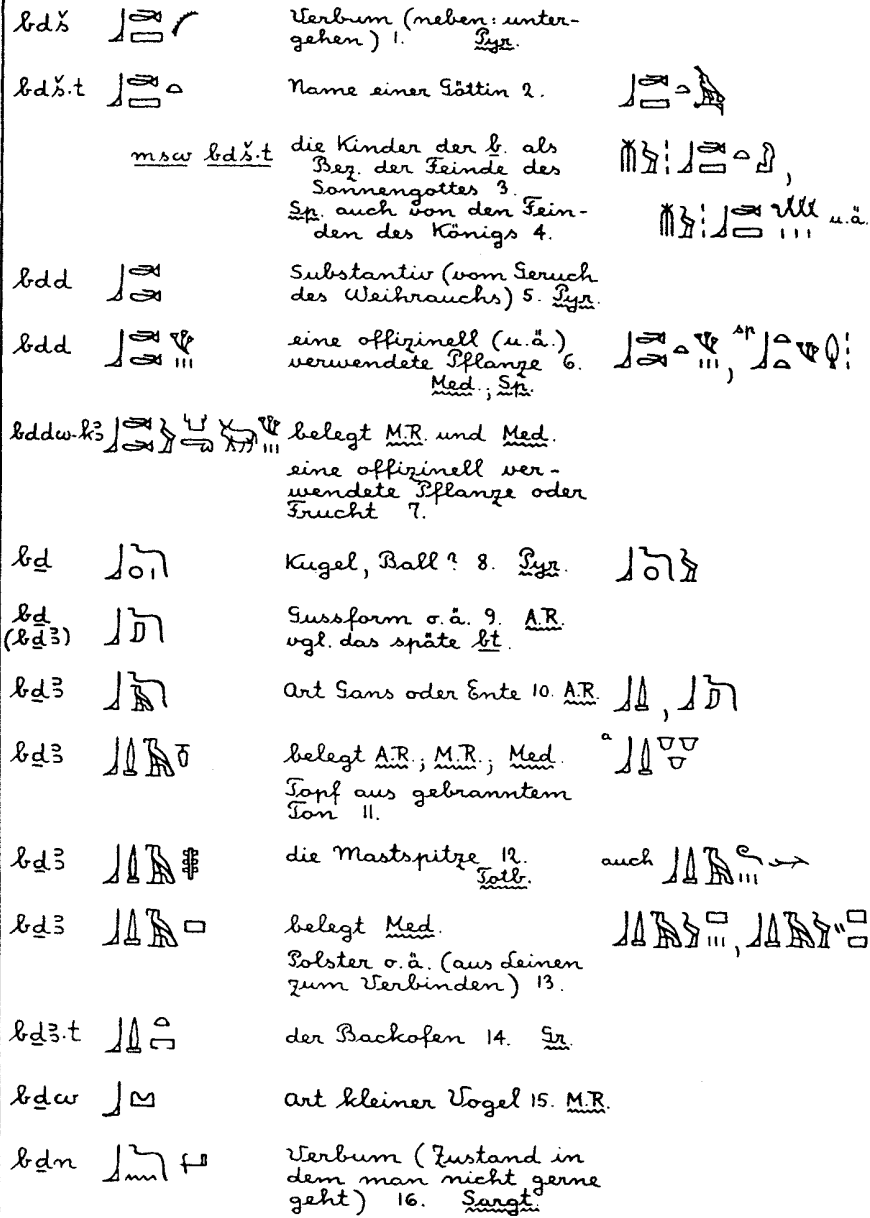 bdš Verbum (neben: unter-
gehen) 1. Pyr.
bdš.t Name einer Göttin 2.
msw bdš.t die Kinder der b. als
Bez. der Feinde des
Sonnengottes 3. ,
Sp. auch von den Fein-
den des Königs 4. u.ä.
bdd Substantiv (vom Geruch
des Weihrauchs) 5. Pyr.
bdd eine offizinell (u.ä.)
verwendete Pflanze 6. , sp
Med.; Sp.
bddw-kꜣ belegt M.R. und Med.
eine offizinell ver-
wendete Pflanze oder
Frucht 7.
bḏ Kugel, Ball? 8. Pyr.
bḏ Gussform o.ä. 9. A.R.
(bḏꜣ) vgl. das späte bt.
bḏꜣ Art Gans oder Ente 10. A.R. ,
bḏꜣ belegt A.R.; M.R.; Med. a
Topf aus gebranntem
Ton 11.
bḏꜣ die Mastspitze 12. auch
Totb.
bḏꜣ belegt Med. ,
Polster o.ä. (aus Leinen
zum Verbinden) 13.
bḏꜣ.t der Backofen 14. Gr.
bḏw Art kleiner Vogel 15. M.R.
bḏn Verbum (Zustand in
dem man nicht gerne
geht) 16. Sargt.